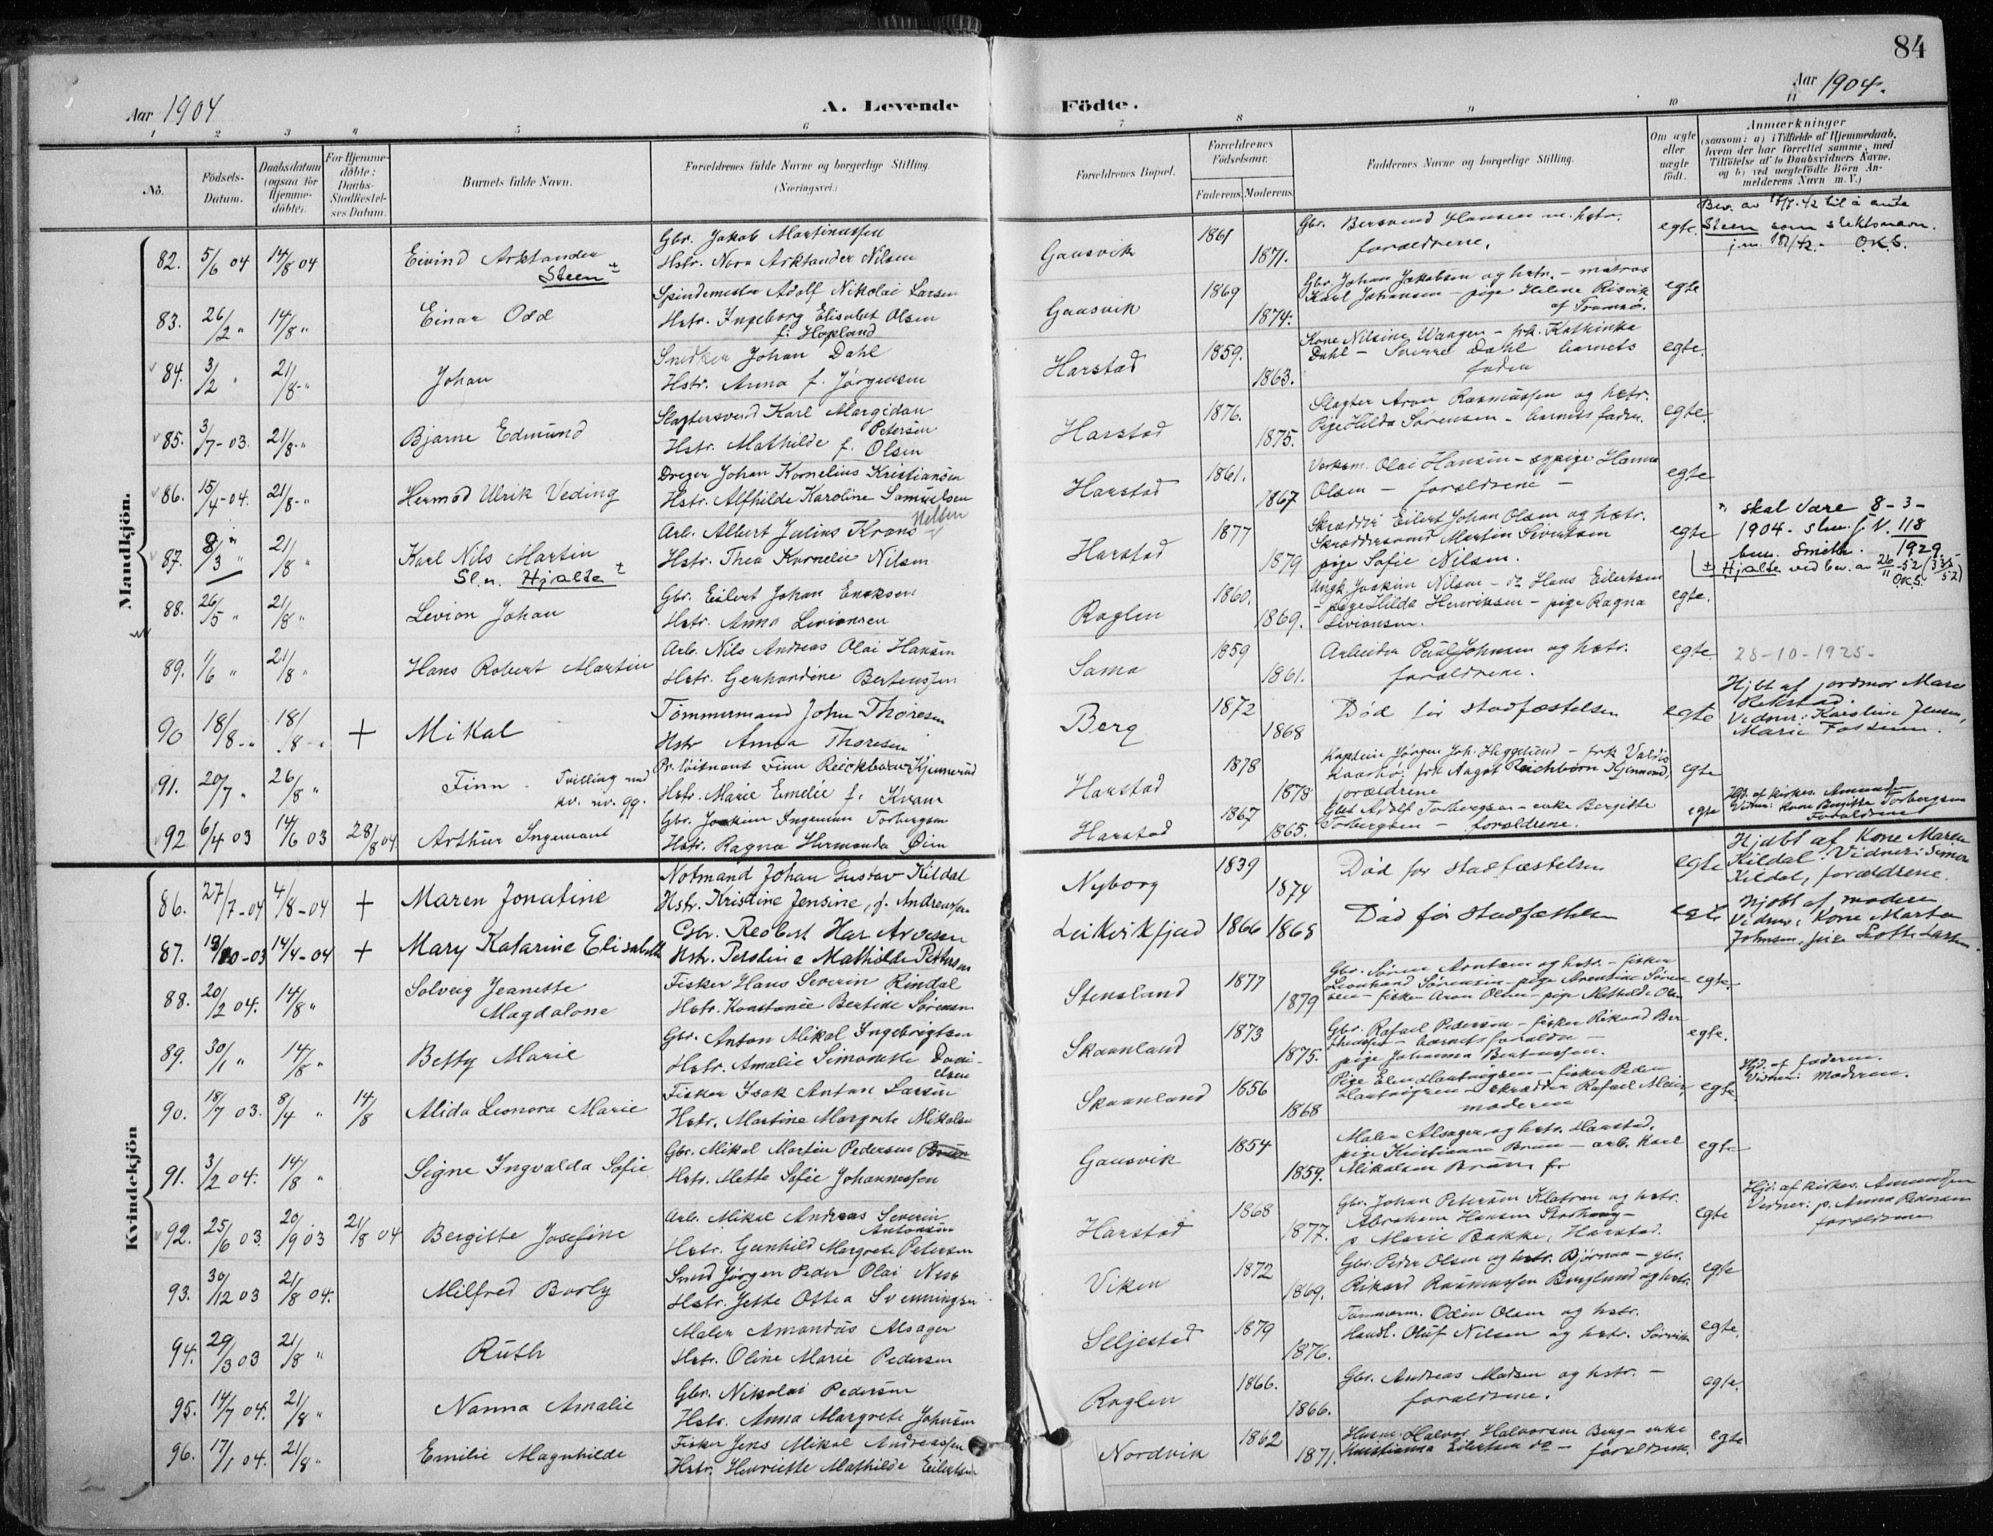 84
Aar 1904
A. Levende
Födte.
Aar 1904.
1 2 3 4 5 6 7 8 9 10 11
No.
Födsels-Datum.
Daabsdatum (ogsaa for Hjemme-döbte).
For Hjemme-döbte: Daabs-Stadfæstel-ses Datum.
Barnets fulde Navn.
Forældrenes fulde Navne og borgerlige Stilling.
(Næringsvei.)
Forældrenes Bopæl.
Forældrenes Födselsaar.
Faderens. Moderens.
Faddernes Navne og borgerlige Stilling.
Om ægte eller uægte födt.
Anmærkninger
(saasom: a) i Tilfælde af Hjemmedaab, hvem der har forrettet samme, med Tilföielse af to Daabsvidners Navne, og b) ved uægtefödte Börn An-melderens Navn m. V.)
Mandkjön.
82. 5/6 04 14/8 04 Eivind Arktander Steen
Gbr. Jakob Martinussen
Hstr. Nora Arktander Nilsen
Gausvik 1861 1871.
Gbr. Bersvend Hansen m. hstr.
forældrene.
egte.
Steen som slektsnavn.
O.K.S.
83. 26/2 " 14/8 " Einar Odd
Spindemester Adolf Nikolai Larsen
Hstr. Ingeborg Elisabet Olsen
f. Hopland
Gausvik 1869 1874.
Gbr. Johan Jakobsen og hstr. – matros
Karl Johansen – pige Helene Risvik
af Tromsø.
egte
84. 3/2 " 21/8 " Johan
Snedker Johan Dahl
Hstr. Anna f. Jørgensen
Harstad 1859. 1863.
Kone Nilsine Waagen – frk. Kathinka
Dahl – Sverre Dahl barnets
fader
egte.
85. 3/7-03. 21/8-" Bjarne Edmund
Slagtersvend Karl Margidan
Petersen
Hstr. Mathilde f. Olsen
Harstad 1876. 1875.
Slagter Aron Rasmussen og hstr.
Pige Hilda Sørensen – barnets fader.
egte.
86. 15/4-04. 21/8-" Hermod Ulrik Veding
Dreyer Johan Kornelius Kristiansen
Hstr. Alfhilde Karoline Samuelsen
Harstad 1861. 1867
Verksm. Olai Hansen – sypige Hanna
Olsen – forældrene –
egte
87. 8/3 " 21/8 " Karl Nils Martin
Sl.n. Hjalte
Arb. Albert Julius Krans
Hstr. Thea Kornelie Nilsen
Harstad 1877 1879
Skrædder Eilert Johan Olsen og hstr.
Skræddersvend Martin Sivertsen
pige Sofie Nilsen.
egte
skal være 8-3-
1904. N. 118
Smith. 1929.
Hjalte ved bev. av 26/11-52
O.K.S.
88. 26/5 " 21/8 " Levion Johan
Gbr. Eilert Johan Eriksen
Hstr. Anna Levionsen
Raglen 1860. 1869.
Ungk. Joakim Nilsen – do Hans Eilertsen
– pige Hilda Henriksen – pige Ragna
Levionsen.
egte.
89. 1/6 " 21/8 " Hans Robert Martin
Arb. Nils Andreas Olai Hansen
Hstr. Gerhardine Bertenssen
Sama 1859 1861.
Arbeider Paul Johnsen og hstr.
forældrene.
egte.
28-10-1925-
90 18/8-" 18/8-" + Mikal
Tømmermand John Thoresen
Hstr Anna Thoresen
Berg 1872 1868
Død før stadfæstelsen
egte
Hjbt af jordmor Maren
Vidner: Karoline Jensen,
Marie
91. 20/7 " 26/8 " Finn. Tvilling med
kv. nr. 99.
Pr. løitnant Finn Reichborn Kjennerud
Hstr. Marie Emelie f. Kvam
Harstad 1878 1878
Kaptein Jørgen Joh. Heggelund – frk Valdis
frk Aagot Reichborn Kjennerud,
forældrene
egte
92 6/4 03 14/6 03 28/8 04. Arthur Ingemant
Gbr. Joakim Ingemun Torbergsen
Hstr. Ragna Hermanda Øien
Harstad 1867 1865.
Gbr Adolf Torbergsen – enke Bergitte
Torbergsen – forældrene.
egte
Hjd. af kirkes. Amundsen
Vidner: Kone Bergitte Torbergsen
Forældrene
Kvindekjön
86. 27/7-04 4/8-04 + Maren Jonatine
Notmand Johan Gustav Kildal
Hstr. Kristine Jensine, f. Andreassen
Nyborg 1839 1874
Død før stadfæstelsen
egte
Hjdbt af Kone Maren
Kildal. Vidner: Simon
Kildal, forældrene.
87. 14/4-04 + Mary Katarine Elisabeth
Gbr. Robert Arvesen
Hstr. Mathilde Petersen
Leikvikfjed 1866 1868
Død før stadfæstelsen
egte
Hjdbt af moderen
Vidner: Kone Marta
Johnsen, pige Lotte Larsen.
88. 20/2 04. 14/8 " Solveig Jeanette
Magdalone
Fisker Hans Severin Rindal
Hstr. Konstance Bertine Sørensen
Stensland 1877 1879
Gbr. Søren Arntsen og hstr. – fisker
Leonhard Sørensen – pige Arentine Søren
sen – fisker Aron Olsen – pige Mathilde Olsen
egte.
89. 30/1 " 14/8 " Betty Marie
Gbr. Anton Mikal Ingebrigtsen
Hstr. Amalie Simonette Dani-
elsen
Skaanland 1873 1875.
Gbr. Rafael Pedersen – fisker Rikard Ber
thensen – barnets forældre –
pige Johanna Bertenssen.
egte.
90. 18/7 03. 8/4 " 14/8 Alida Leonora Marie
Fisker Isak Anton Larsen
Hstr. Martine Margrete Mikalsen
Skaanland 1856 1868
Pige Elen – fisker Peder
– skrædder Rafael
moderen
egte
Hjd. af faderen.
Vidner: moderen.
91. 3/2 04. 14/8 " Signe Ingvalda Sofie
Gbr. Mikal Martin Pedersen Brun
Hstr. Mette Sofie Johannessen
Gausvik 1854 1859.
Maler Alsager og hstr. Harstad,
pige Kristianna Brun – arb. Karl
Mikalsen Brun
egte
92. 25/6 03. 20/9 03 21/8 04 Bergitte Josefine
Arb. Mikal Andreas Severin
Antonsen
Hstr. Gunhild Margrete Petersen
Harstad 1868 1877.
Gbr. Johan Petersen Klatran og hstr.
Abraham Hansen –
p Marie Bakke, Harstad.
egte
Hjd. af kirkes. Amundsen
Vidner: p. Anna Pedersen
forældrene
93. 30/12 03 21/8 04. Milfred Borly
Smed Jørgen Peder Olai Ness
Hstr. Jette Ottea Svenningsen
Viken 1872 1869.
Gbr. Peder Olsen og hstr. Bjørnaa – gbr.
Rikard Rasmussen Berglund og hstr.
egte
94. 29/3 03 21/8 " Ruth
Maler Amandus Alsager
Hstr. Oline Marie Pedersen
Seljestad 1879 1876.
Tømmerm. Odin Olsen og hstr.
Handl. Oluf Nilsen og hstr. Sørvik
egte.
95. 14/7 04. 21/8 " Nanna Amalie
Gbr. Nikolai Pedersen
Hstr. Anna Margrete Johnsen
Raglen 1866. 1866.
Gbr. Andreas Madsen og hstr. –
forældrene.
egte.
96. 17/1 04. 21/8 " Emilie Magnhilde
Fisker Jens Mikal Andreassen
Hstr. Henriette Mathilde Eilertsen
Nordvik 1862 1871.
Husm. Halvor Halvorsen Berg – enke
Kristianna Eilertsen do – forældrene.
egte